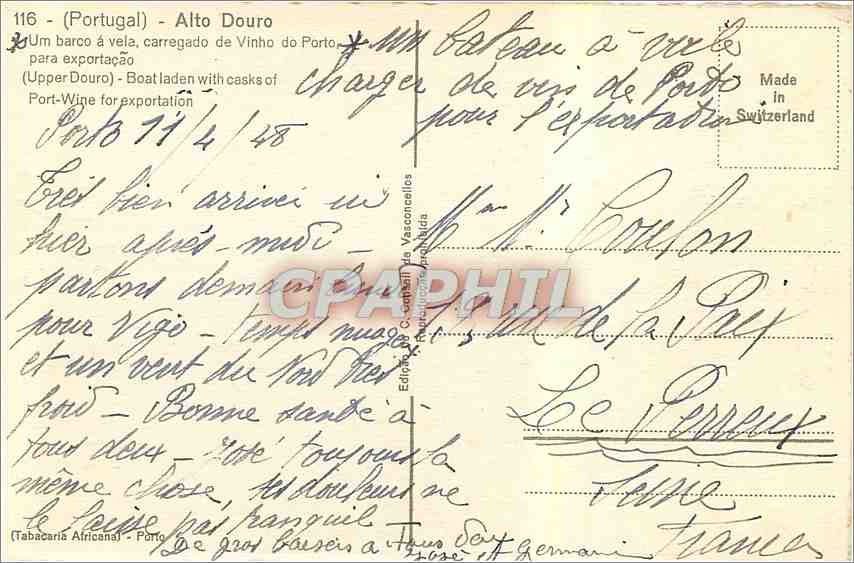 116 - (Portugal) - Alto Douro
Um barco á vela, carregado de Vinho do Porto,
para exportação
(Upper Douro) - Boat laden with casks of
Port-Wine for exportation
* un bateau à voile
charger de vin de Porto
pour l'exportation
Made
in
Switzerland
Porto 11/4/48
Très bien arrivé ici
hier après-midi -
partons demain
pour Vigo - temps nuageux
et un vent du Nord très
froid - Bonne santé à
tous deux - José toujours la
même chose, ses douleurs ne
le laisse pas tranquil -
De gros baisers à tous deux
José et Germaine
Edição de C. Consell de Vasconcellos
Reproducção prohibida
Mme Mr Coulon
rue de la Paix
Le Perreux
Seine
France
(Tabacaria Africana) - Porto
CPAPHIL